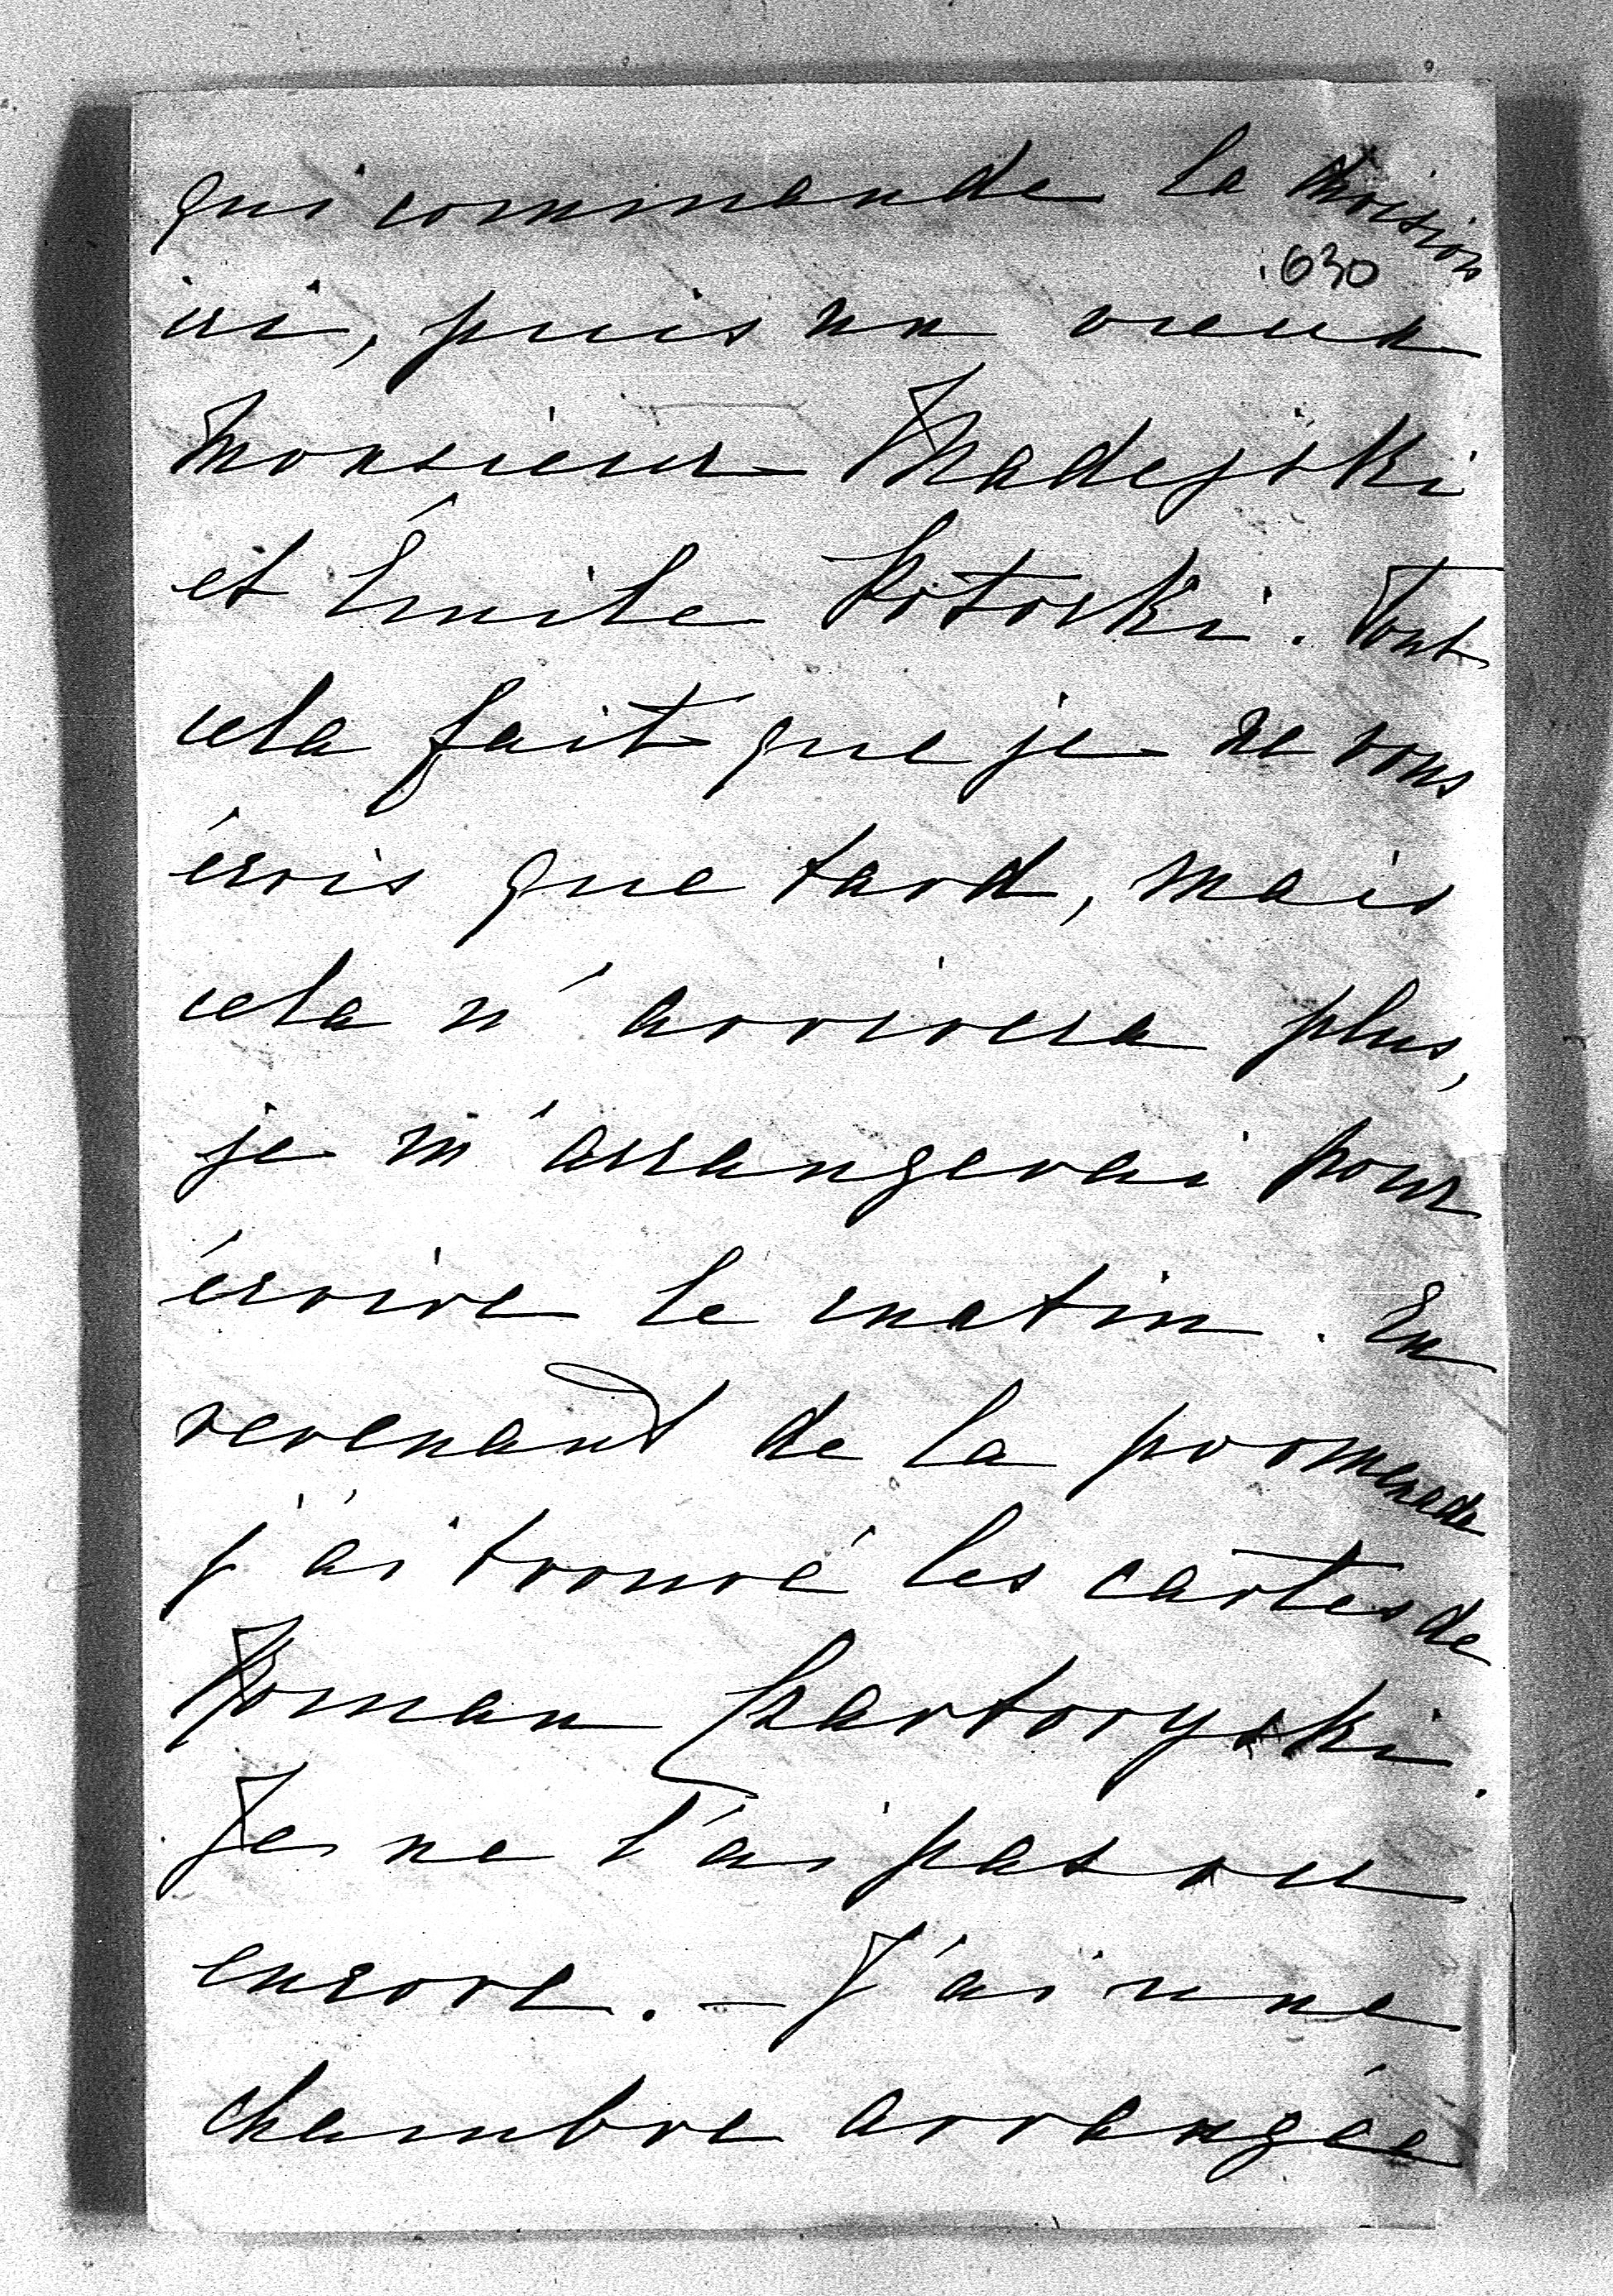 qui commande la division
630
ici, puis un vieux
Monsieur Madejski
et Émile Potocki. Tout
cela fait que je ne vous
écris que tard, mais
cela n'arrivera plus,
je m'arrangerai pour
écrire le matin. En
revenant de la promenade
j'ai trouvé les cartes de
Roman Czartoryski.
Je ne l'ai pas vu
encore. – J'ai une
chambre arrangée